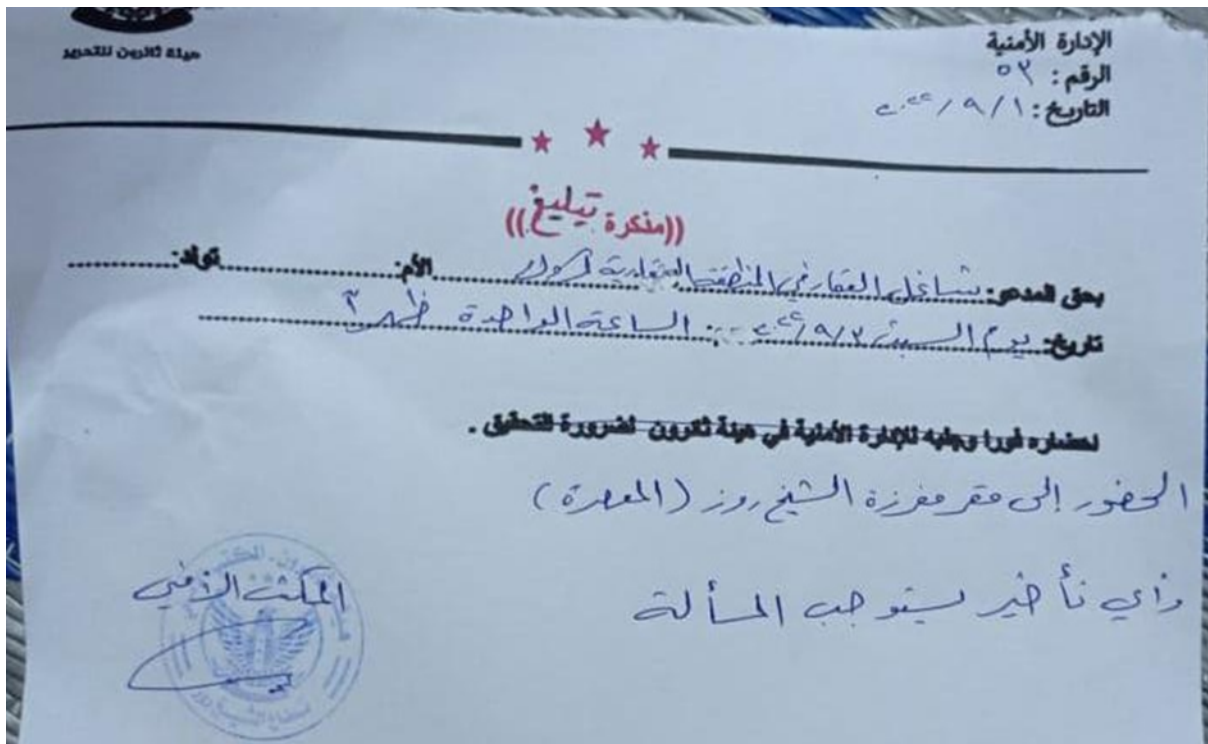 هيئة ثائرون للتحرير
الإدارة الأمنية
الرقم: ٥٣
التاريخ: ٢٠٢٢/٩/١
((مذكرة تبليغ))
بحق المدعو: شاغل العقار في المنطقة العقارية الأم: تولد:
تاريخ: يوم السبت ٢٠٢٢/٩/٣ الساعة الواحدة ظهراً
لحضاره فورا وجلبه للإدارة الأمنية في هيئة ثائرون لضرورة التحقيق .
الحضور إلى مقر مفرزة الشيخ روز (المعصرة)
وأي تأخير يستوجب المسألة
المكتب الأمني